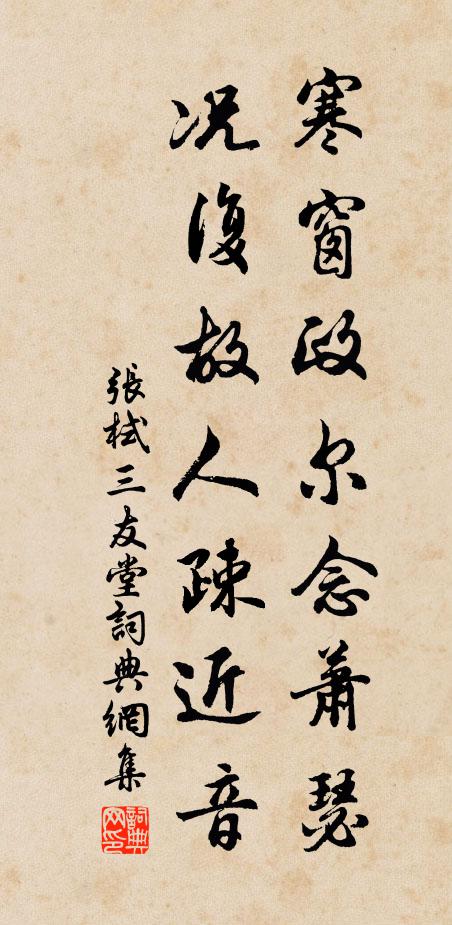 寒窗政尔念蕭瑟
况復故人疎近音
張栻三友堂詞典網集
詞典网印